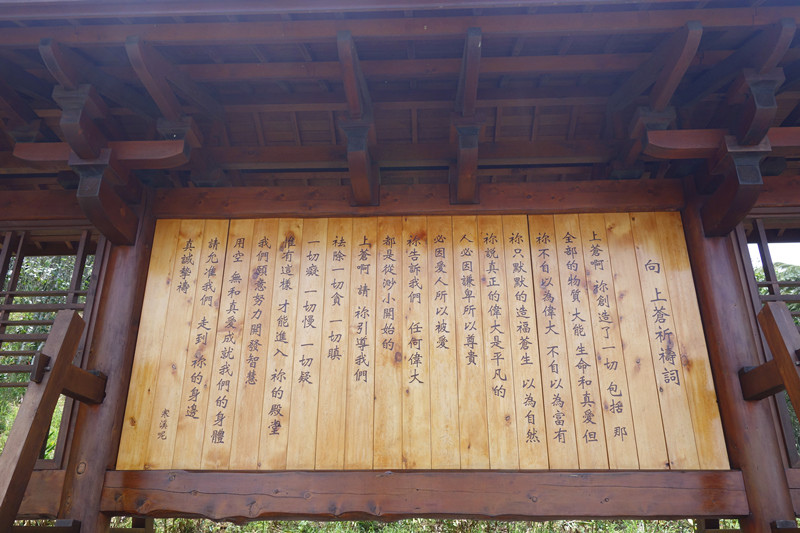 向 上蒼祈禱詞
上蒼啊 祢創造了一切 包括 那
全部的物質 大能 生命和真愛 但
祢不自以為偉大 不自以為富有
祢只默默的造福蒼生 以為自然
祢說真正的偉大是平凡的
人必因謙卑所以尊貴
必因愛人所以被愛
祢告訴我們 任何偉大
都是從渺小開始的
上蒼啊 請 祢引導我們
祛除一切貪 一切瞋
一切癡 一切慢 一切疑
唯有這樣 才能進入 祢的殿堂
我們願意努力開發智慧
用空 無和真愛成就我們的身體
請允准我們 走到 祢的身邊
真誠摯禱
寒溪呢